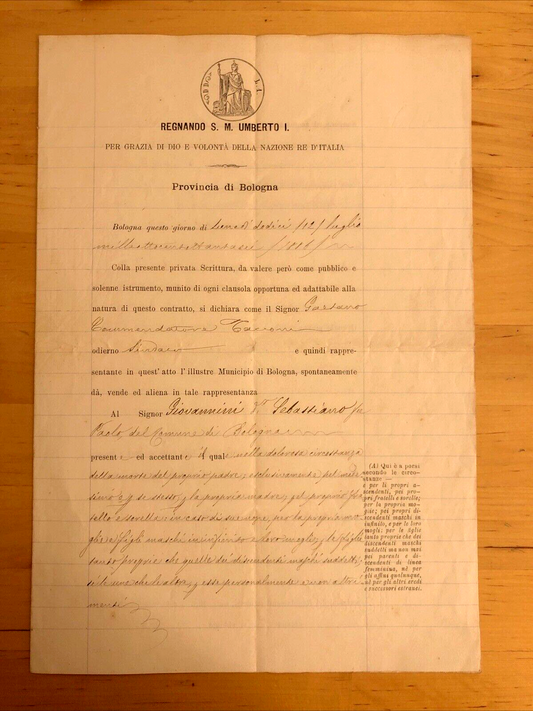 REGNANDO S. M. UMBERTO I.
PER GRAZIA DI DIO E VOLONTÀ DELLA NAZIONE RE D'ITALIA
Provincia di Bologna
Bologna questo giorno di lunedì dodici /12/ luglio
milleottocentottantasei /1886/
Colla presente privata Scrittura, da valere però come pubblico e
solenne istrumento, munito di ogni clausola opportuna ed adattabile alla
natura di questo contratto, si dichiara come il Signor Gaetano
Commendatore Tacconi
odierno Sindaco e quindi rappre-
sentante in quest' atto l'illustre Municipio di Bologna, spontaneamente
dà, vende ed aliena in tale rappresentanza
Al Signor Giovannini Sebastiano fu
Paolo del Comune di Bologna
presente ed accettante il quale nella dolorosa circostanza
della morte del proprio padre, esclusivamente pel mede-
simo e per se stesso, la propria madre, pel proprio fra-
tello e sorella, in caso di sue nozze, per la propria mo-
glie e figli maschi in infinito e loro moglie, le figlie
tanto proprie che quelle dei discendenti maschi suddetti,
e esse personalmente e non altri-
menti
(A) Qui è a porsi
secondo le circo-
stanze:—
è per li propri a-
scendenti, pei pro-
pri fratelli e sorelle;
per la propria mo-
glie; pei propri di-
scendenti maschi in
infinito, e per le loro
mogli: per le figlie
tanto proprie che dei
discendenti maschi
suddetti ma non mai
pei parenti e di-
scendenti di linea
femminina, nè per
gli affini qualunque,
nè per gli altri eredi
e successori estranei.